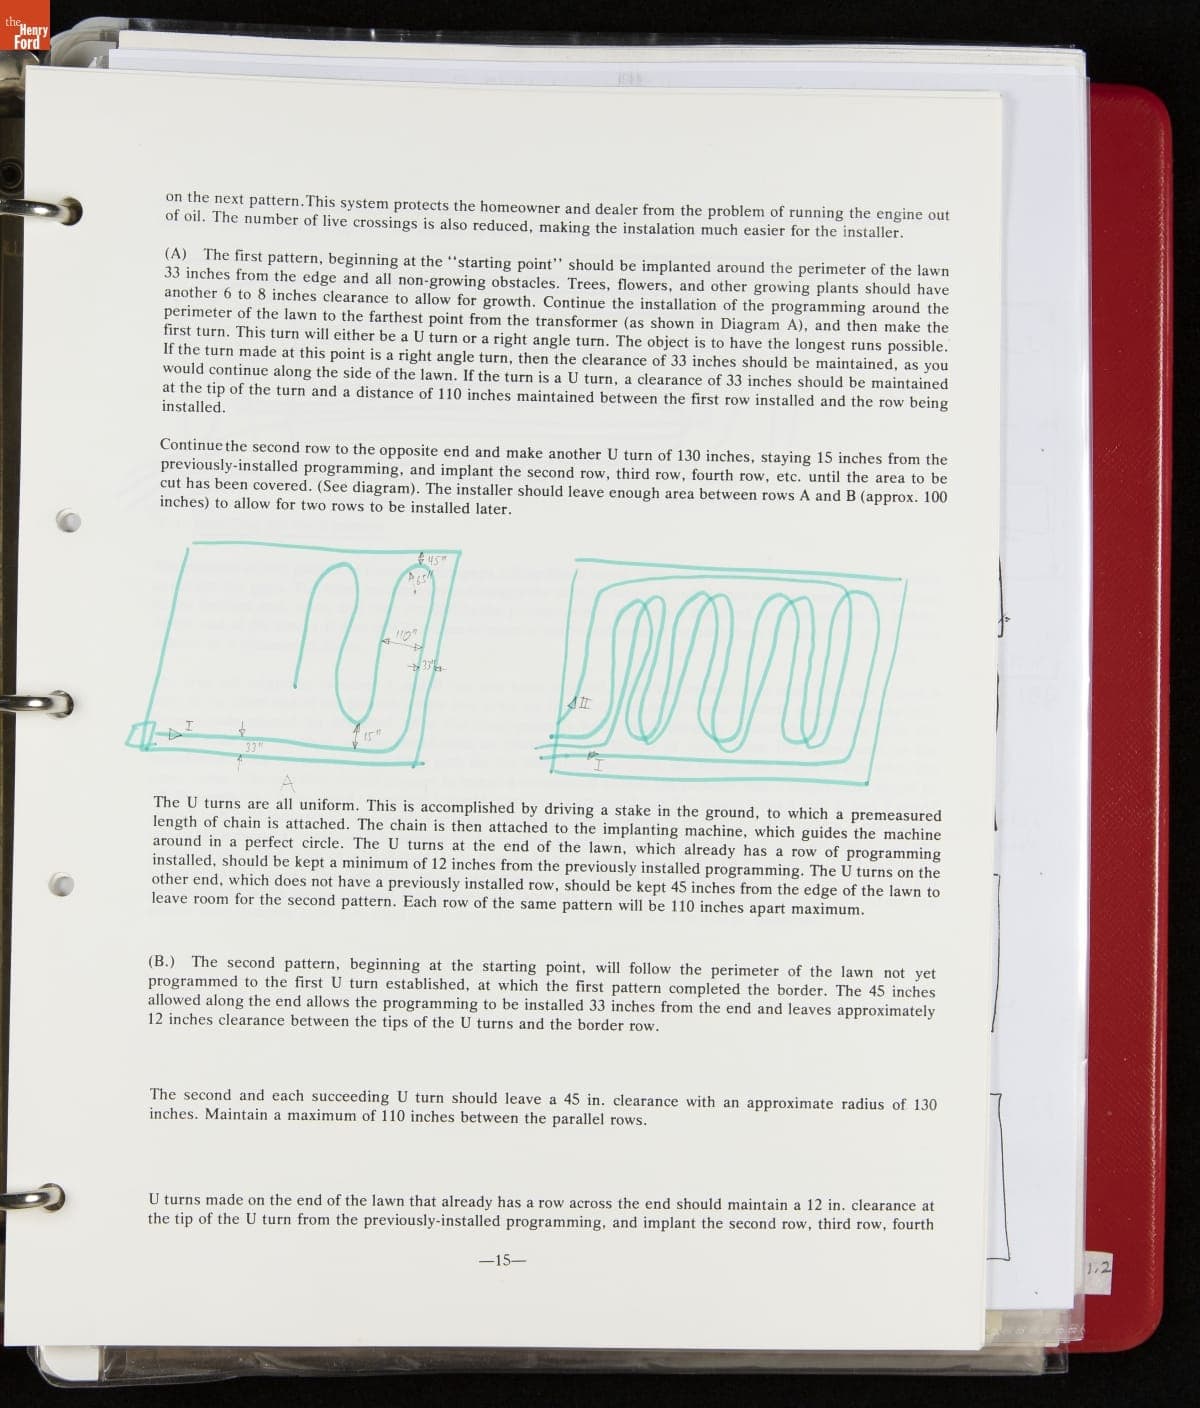 the
Henry
Ford
on the next pattern.This system protects the homeowner and dealer from the problem of running the engine out
of oil. The number of live crossings is also reduced, making the instalation much easier for the installer.
(A) The first pattern, beginning at the ‘‘starting point’’ should be implanted around the perimeter of the lawn
33 inches from the edge and all non-growing obstacles. Trees, flowers, and other growing plants should have
another 6 to 8 inches clearance to allow for growth. Continue the installation of the programming around the
perimeter of the lawn to the farthest point from the transformer (as shown in Diagram A), and then make the
first turn. This turn will either be a U turn or a right angle turn. The object is to have the longest runs possible.
If the turn made at this point is a right angle turn, then the clearance of 33 inches should be maintained, as you
would continue along the side of the lawn. If the turn is a U turn, a clearance of 33 inches should be maintained
at the tip of the turn and a distance of 110 inches maintained between the first row installed and the row being
installed.
Continue the second row to the opposite end and make another U turn of 130 inches, staying 15 inches from the
previously-installed programming, and implant the second row, third row, fourth row, etc. until the area to be
cut has been covered. (See diagram). The installer should leave enough area between rows A and B (approx. 100
inches) to allow for two rows to be installed later.
45"
65"
110"
33"
I
33"
15"
A
II
I
The U turns are all uniform. This is accomplished by driving a stake in the ground, to which a premeasured
length of chain is attached. The chain is then attached to the implanting machine, which guides the machine
around in a perfect circle. The U turns at the end of the lawn, which already has a row of programming
installed, should be kept a minimum of 12 inches from the previously installed programming. The U turns on the
other end, which does not have a previously installed row, should be kept 45 inches from the edge of the lawn to
leave room for the second pattern. Each row of the same pattern will be 110 inches apart maximum.
(B.) The second pattern, beginning at the starting point, will follow the perimeter of the lawn not yet
programmed to the first U turn established, at which the first pattern completed the border. The 45 inches
allowed along the end allows the programming to be installed 33 inches from the end and leaves approximately
12 inches clearance between the tips of the U turns and the border row.
The second and each succeeding U turn should leave a 45 in. clearance with an approximate radius of 130
inches. Maintain a maximum of 110 inches between the parallel rows.
U turns made on the end of the lawn that already has a row across the end should maintain a 12 in. clearance at
the tip of the U turn from the previously-installed programming, and implant the second row, third row, fourth
—15—
1.2